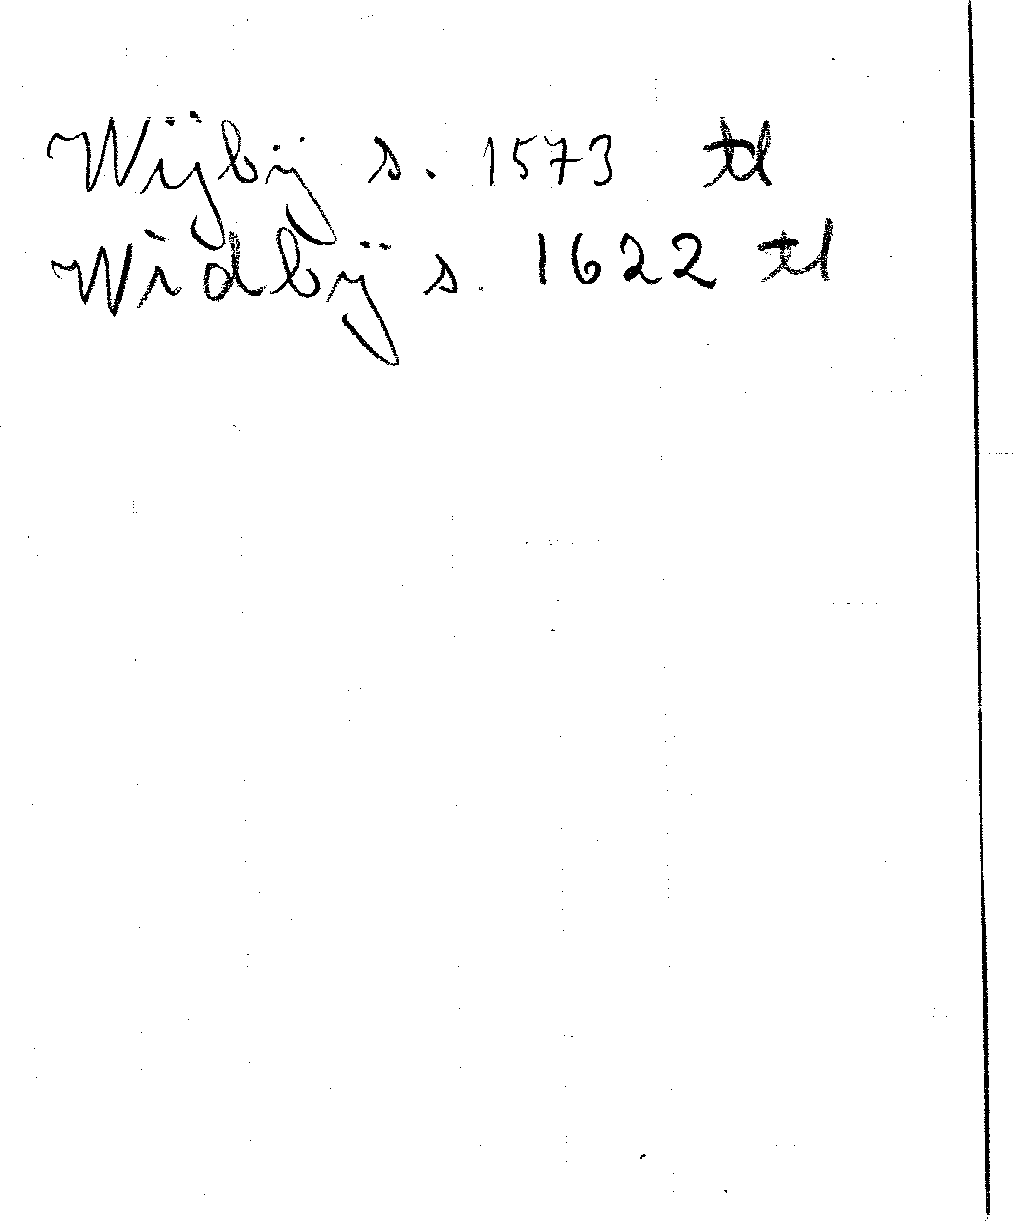 Wijbÿ s. 1573 tl
Widbÿ s. 1622 tl